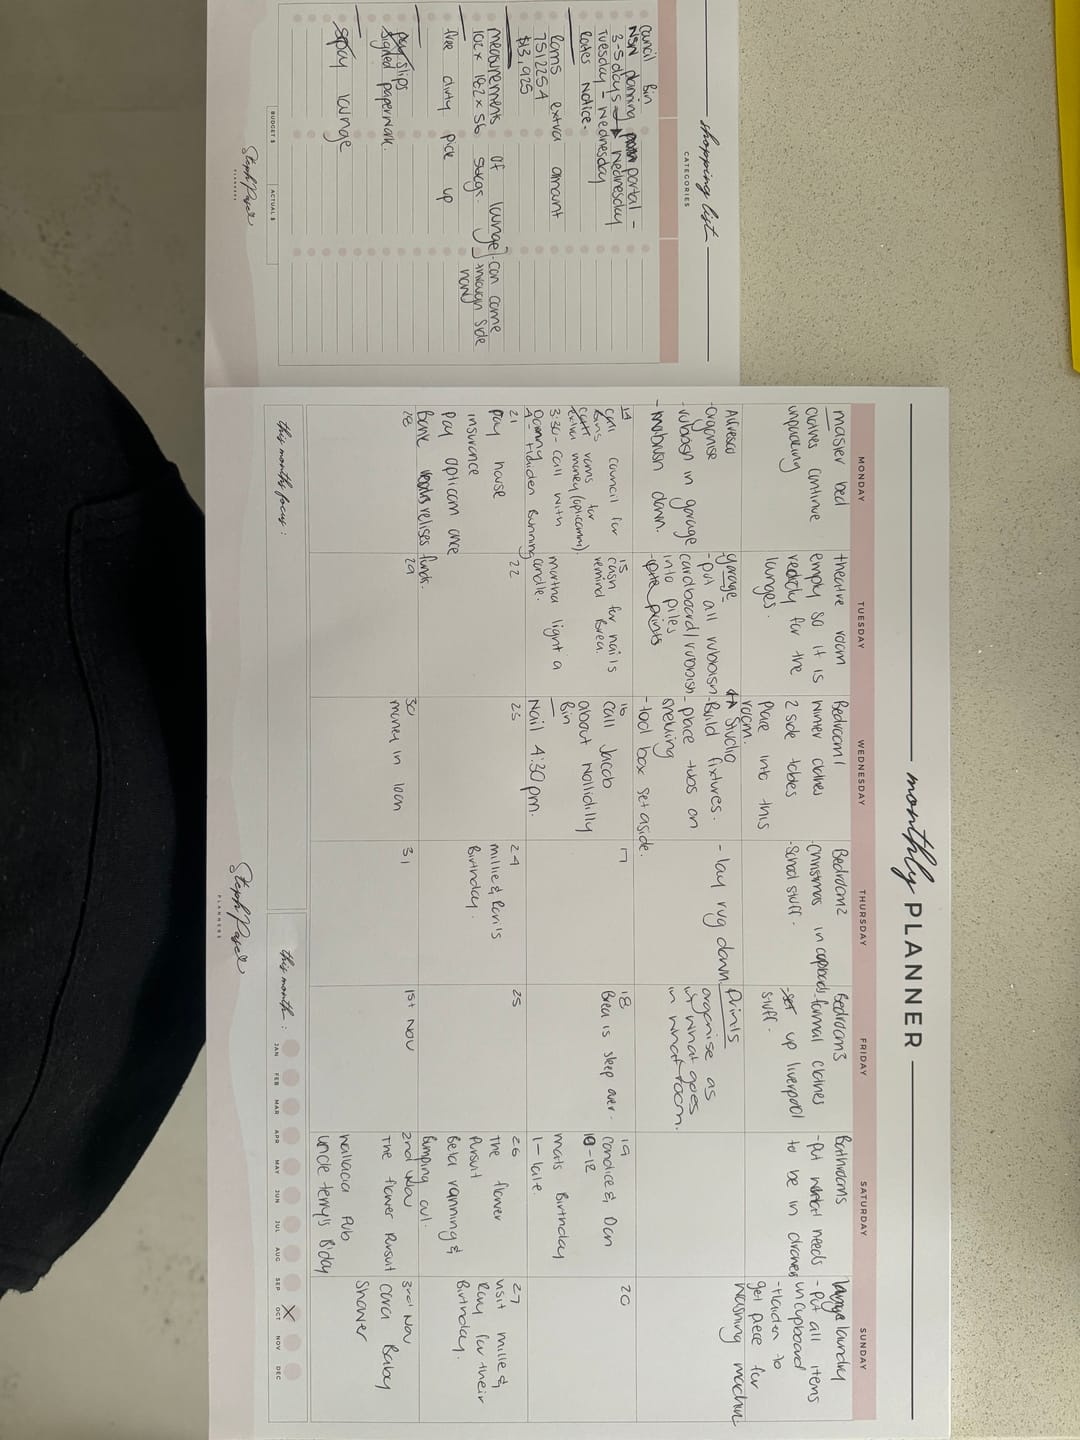 shopping list
CATEGORIES
council Bin
NSW planning portal -
3-5 days → Wednesday
Tuesday - Wednesday
Rates Notice.
Loms extra amant
7512254
$13,925
measurements of lounge
102 x 182 x 56 5kgs.
can come
through side
now
free dirty pick up
pay slips
signed paperwork.
spay lounge
BUDGET $
ACTUAL $
Steph Pase
PLANNERS
monthly PLANNER
MONDAY
TUESDAY
WEDNESDAY
THURSDAY
FRIDAY
SATURDAY
SUNDAY
master bed
clothes continue
unpacking
theatre room
empty so it is
ready for the
lounges.
Bedroom1
winter clothes
2 side tables
Place into this
room.
Bedroom2
christmas in cupboards
-school stuff.
Bedroom3
-formal clothes
-set up liverpool
stuff.
Bathrooms
-put what needs
to be in drawers
laundry
- Put all items
in cupboard
-Haiden to
get piece for
washing machine
Alfresco
-organise
rubbish in garage
- down.
garage
- put all rubbish
cardboard/rubbish
into piles
-prints
Studio
-Build fixtures.
- place tubs on
shelving
-tool box set aside.
- lay rug down
Prints
organise as
what goes
in what room.
14
call council for
call loms for
money (opticomm).
3:30 - call with
Danny
15
cash for nails
remind Brea.
martha light a
candle.
16
call Jacob
about Wollidilly
Bin
17
18
Brea is sleep over.
19
candice & Dan
10-12
mats Birthday
1 - late
20
21
Pay house
insurance
Pay opticom once
Bank relises funds.
22
23
Nail 4:30pm.
24
millie & Rori's
Birthday.
25
26
The flower
Pursuit
Bela running &
Pumping out.
27
visit millie &
Rory for their
Birthday.
28
29
30
money in loan
31
1st Nov
2nd Nov
The flower Pursuit
Wallacia Pub
Uncle Terry's B'day
3rd Nov
Cara Baby
Shower
this months focus:
this month:
JAN
FEB
MAR
APR
MAY
JUN
JUL
AUG
SEP
OCT
NOV
DEC
Steph Pase
PLANNERS